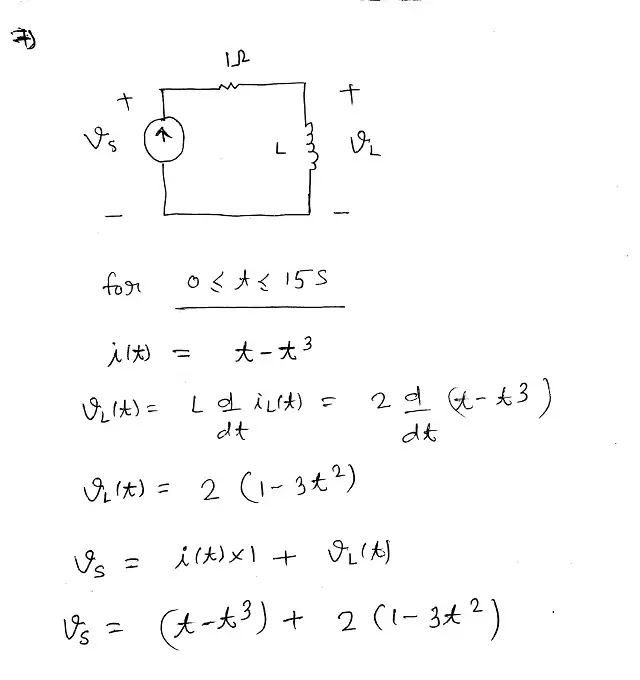 7)
1Ω
+ +
𝑣s L 𝑣L
− −
for 0 ≤ t ≤ 15 s
i(t) = t - t³
𝑣L(t) = L d/dt iL(t) = 2 d/dt (t - t³)
𝑣L(t) = 2 (1 - 3t²)
𝑣s = i(t)×1 + 𝑣L(t)
𝑣s = (t - t³) + 2 (1 - 3t²)